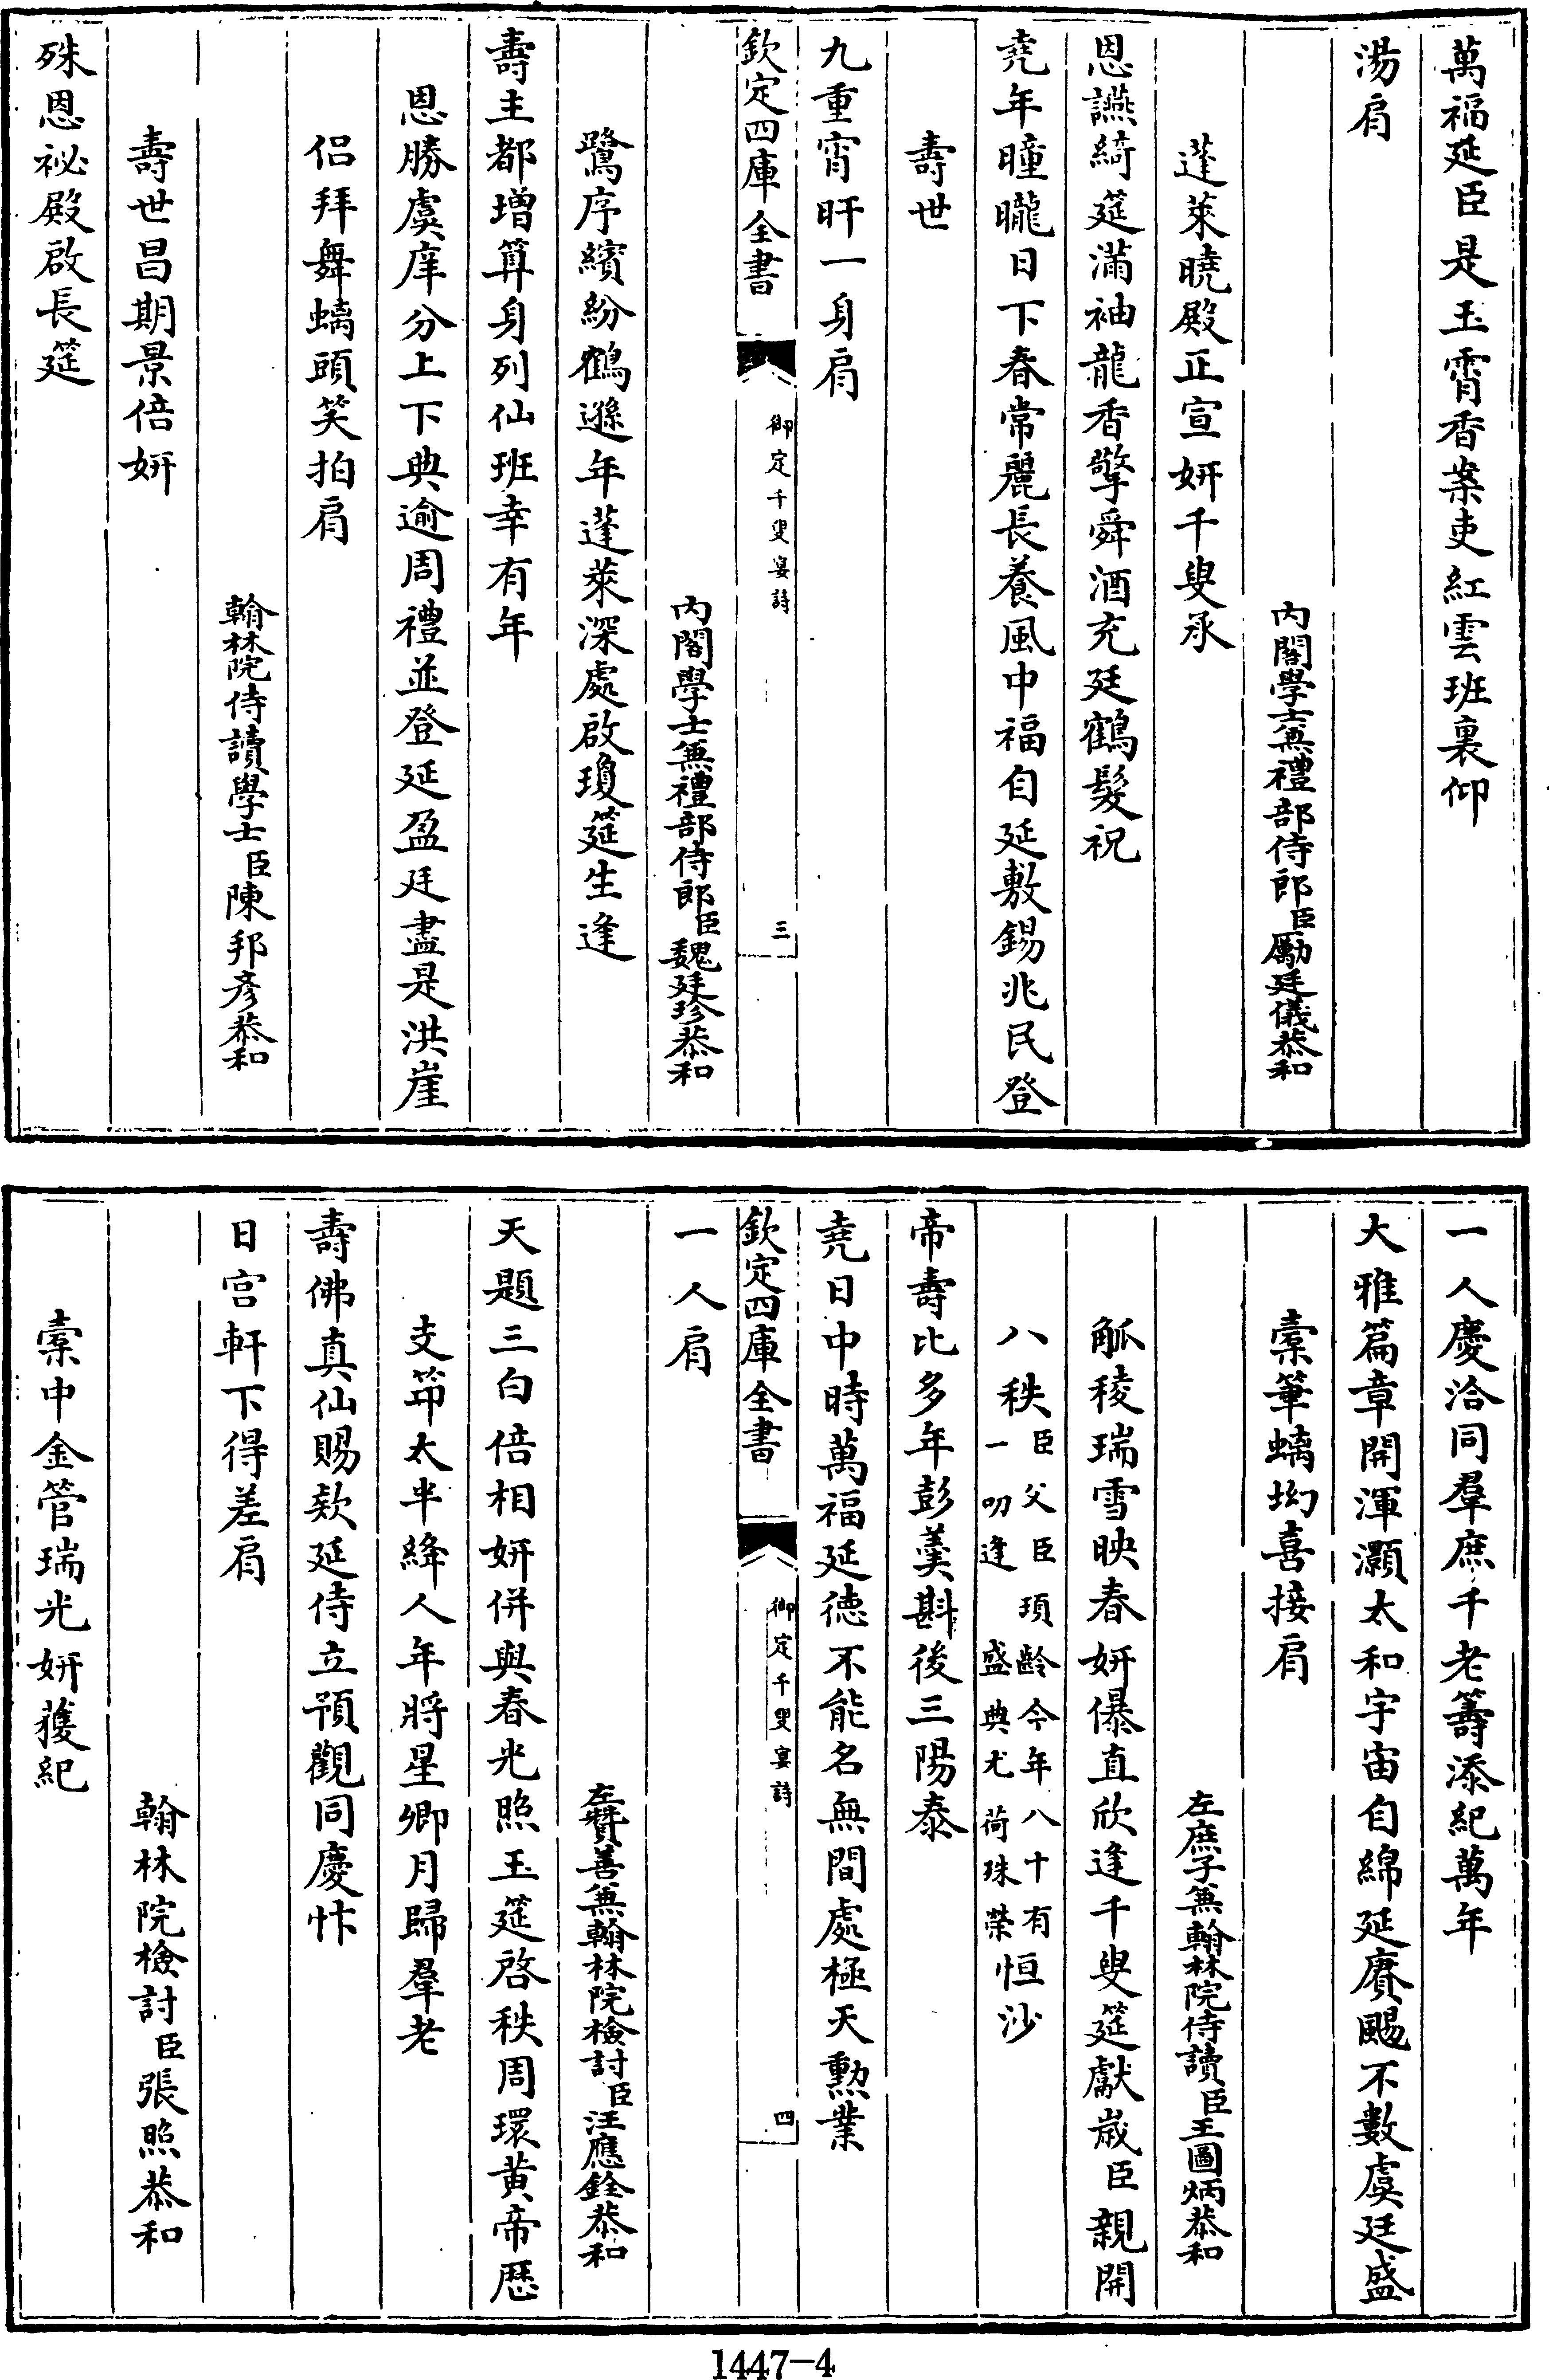 萬福延臣是玉霄香案吏紅雲班裏仰
湯肩
內閣學士兼禮部侍郎臣勵廷儀恭和
蓬萊曉殿正宣妍千叟承
恩讌綺筵滿袖龍香擎舜酒充廷鶴髮祝
堯年曈曨日下春常麗長養風中福自延敷錫兆民登
壽世
九重宵旰一身肩
欽定四庫全書
御定千叟宴詩
三
內閣學士兼禮部侍郎臣魏廷珍恭和
鷺序繽紛鶴遜年蓬萊深處啟瓊筵生逢
壽主都增算身列仙班幸有年
恩勝虞庠分上下典逾周禮並登延盈廷盡是洪崖
侶拜舞螭頭笑拍肩
翰林院侍讀學士臣陳邦彥恭和
壽世昌期景倍妍
殊恩祕殿啟長筵
一人慶洽同羣庶千老籌添紀萬年
大雅篇章開渾灝太和宇宙自綿延賡颺不數虞廷盛
橐筆螭坳喜接肩
左庶子兼翰林院侍讀臣王圖炳恭和
觚稜瑞雪映春妍㬥直欣逢千叟筵獻歲臣親開
八秩臣父臣頊齡今年八十有一叨逢盛典尤荷殊榮恒沙
帝壽比多年彭羹斟後三陽泰
堯日中時萬福延德不能名無間處極天勲業
欽定四庫全書
御定千叟宴詩
四
一人肩
左贊善兼翰林院檢討臣汪應銓恭和
天題三白倍相妍併與春光照玉筵啓秩周環黃帝歷
支笻太半絳人年將星卿月歸羣老
壽佛真仙賜欵延侍立預觀同慶忭
日宫軒下得差肩
翰林院檢討臣張照恭和
橐中金管瑞光妍獲紀
1447-4